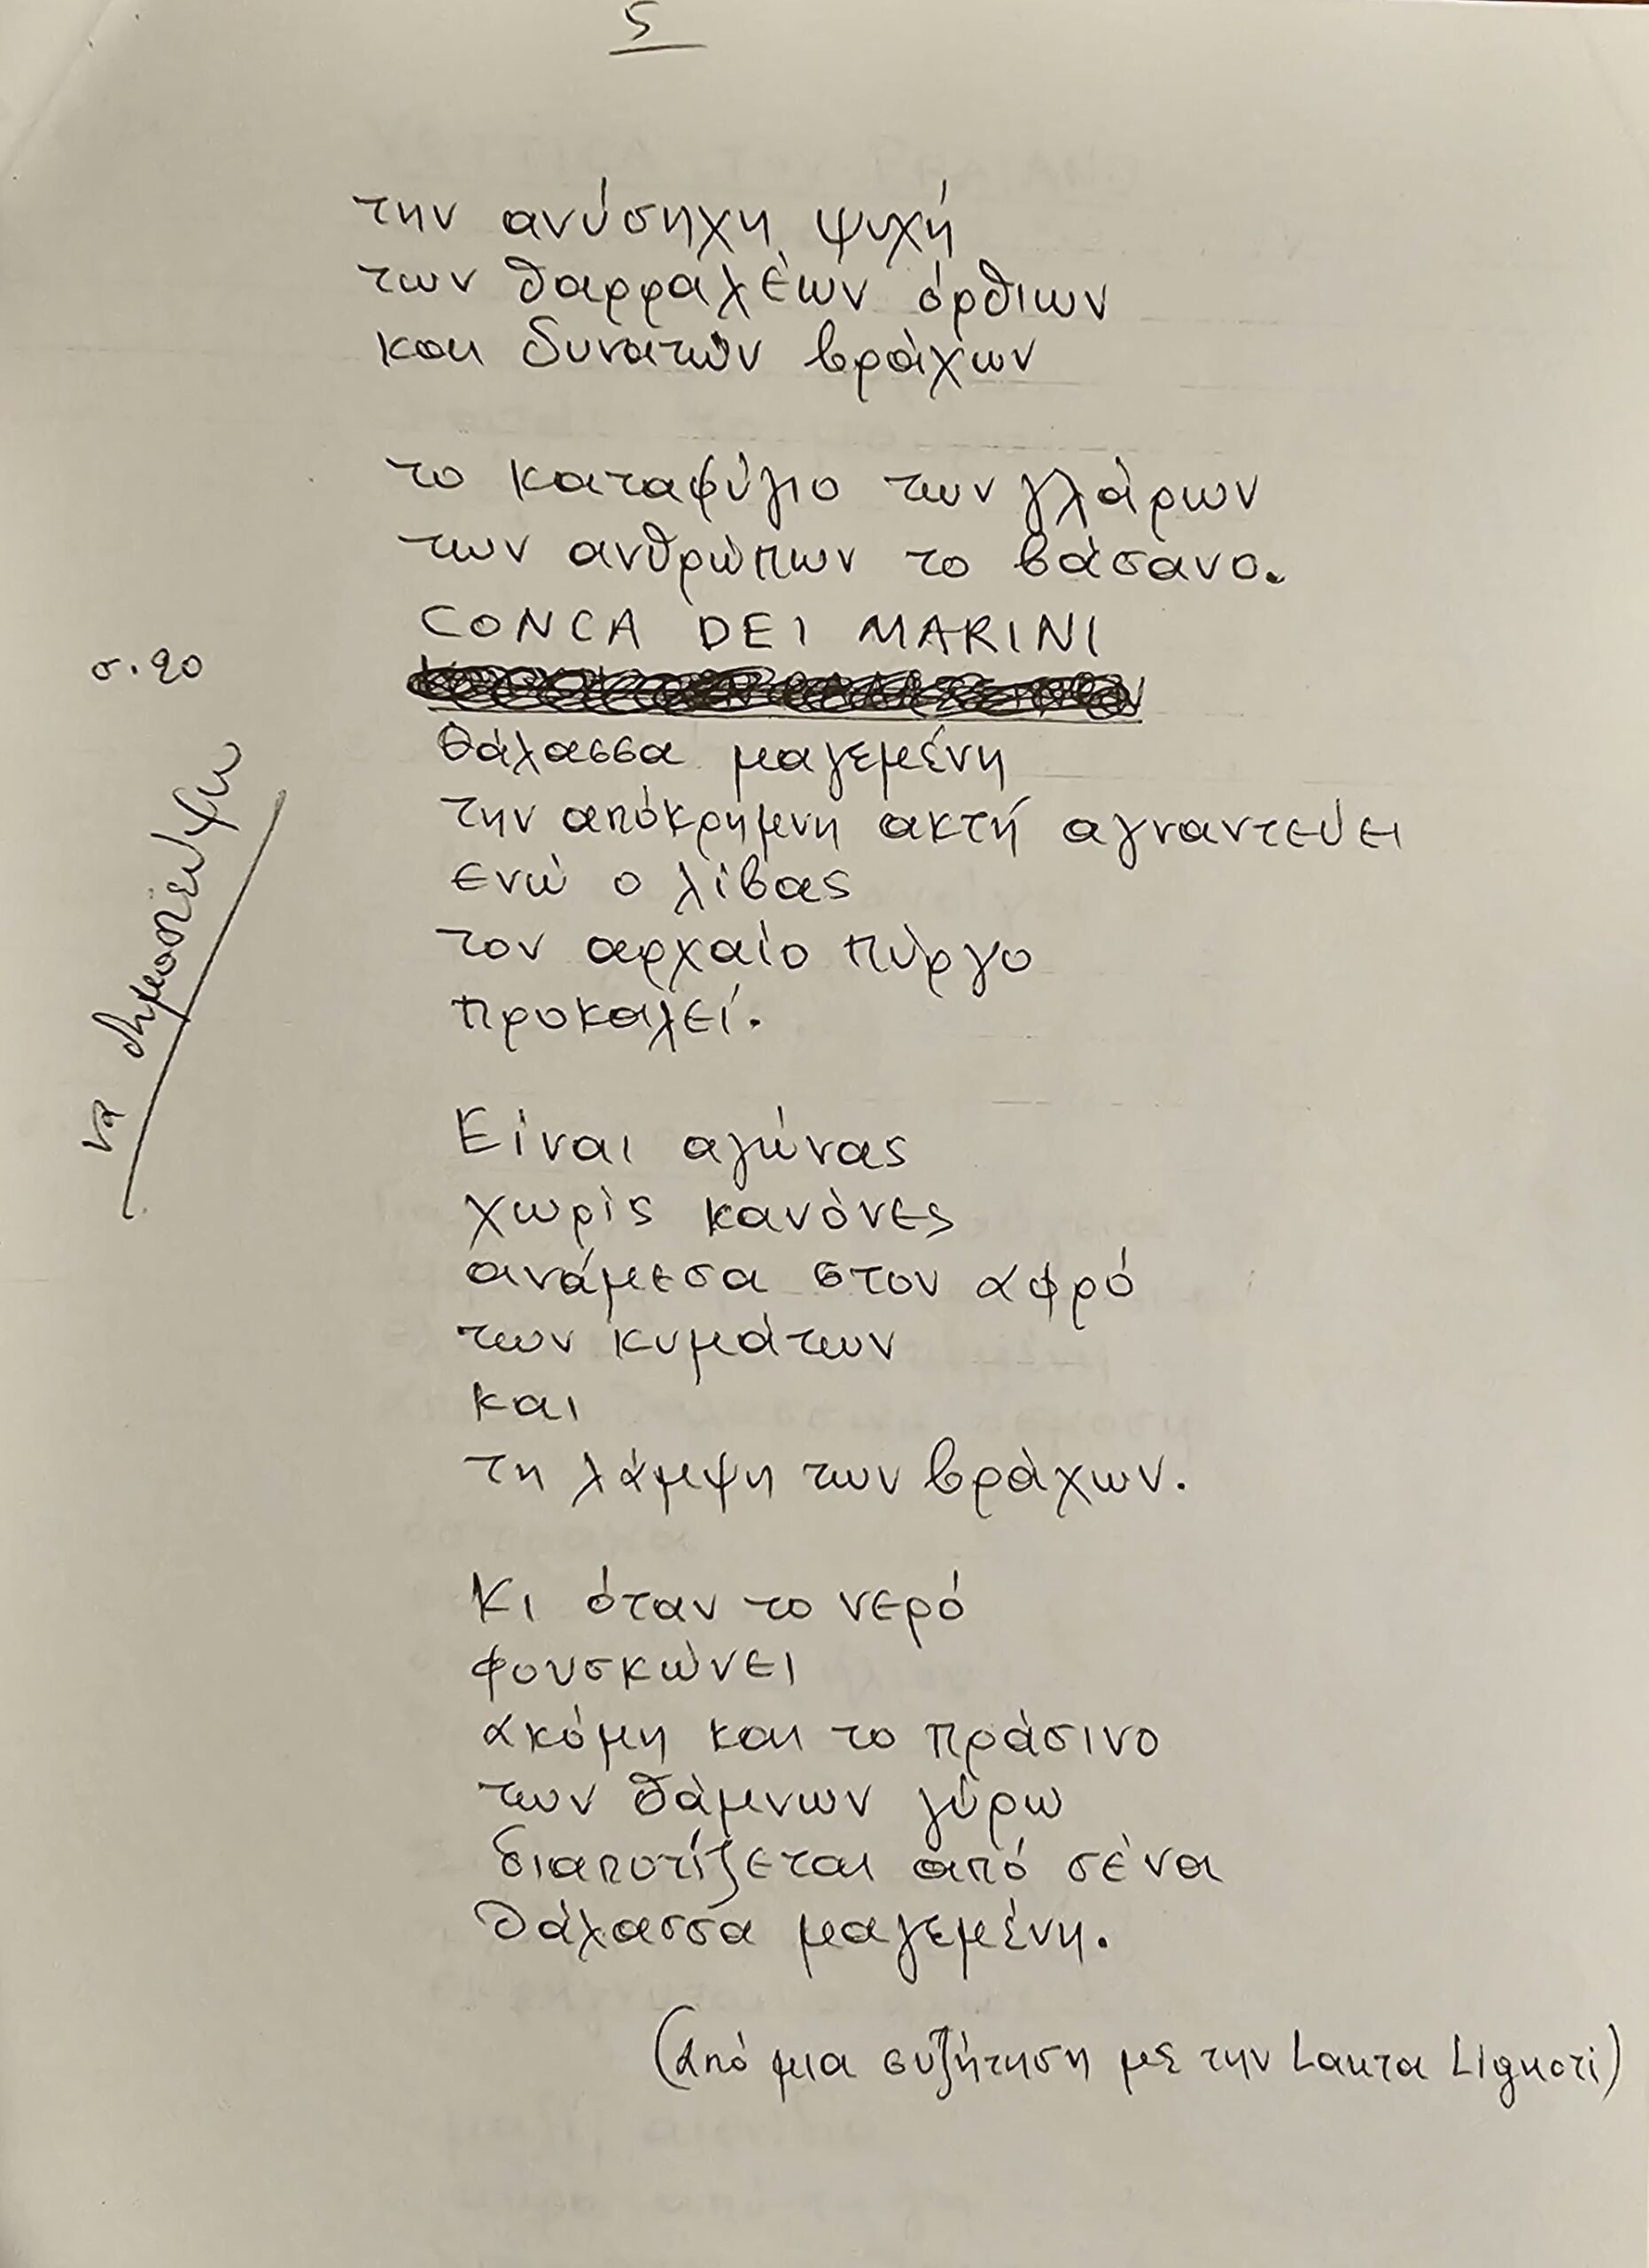 5
την ανύσηχη ψυχή
των θαρραλέων όρθιων
και δυνατών βράχων
το καταφύγιο των γλάρων
των ανθρώπων το βάσανο.
CONCA DEI MARINI
σ. 20
θάλασσα μαγεμένη
την απόκρημνη ακτή αγναντεύει
ενώ ο λίβας
τον αρχαίο πύργο
προκαλεί.
να δημοσιευφει
Είναι αγώνας
χωρίς κανόνες
ανάμεσα στον αφρό
των κυμάτων
και
τη λάμψη των βράχων.
Κι όταν το νερό
φουσκώνει
ακόμη και το πράσινο
των θάμνων γύρω
διαποτίζεται από σένα
θάλασσα μαγεμένη.
(από μια συζήτηση με την Laura Liguori)